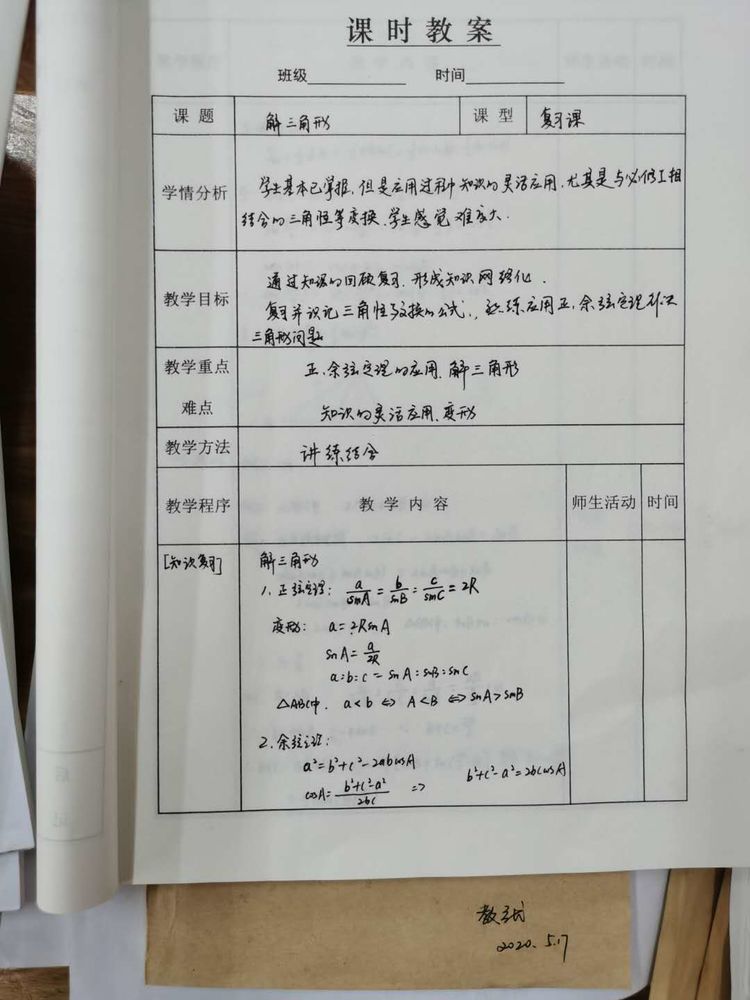 课时教案
班级 时间
课题 解三角形 课型 复习课
学情分析 学生基本已掌握,但是应用过程中知识的灵活应用,尤其是与必修工相
结合的三角恒等变换、学生感觉难度大.
教学目标 通过知识的回顾复习,形成知识网络化.
复习并识记三角恒等变换的公式.,熟练应用正、余弦定理解决
三角形问题
教学重点 正、余弦定理的应用、解三角形
难点 知识的灵活应用、变形
教学方法 讲练结合
教学程序 教学内容 师生活动 时间
[知识复习] 解三角形
1. 正弦定理: a/sinA = b/sinB = c/sinC = 2R
变形: a=2RsinA
sinA= a/2R
a:b:c = sinA:sinB:sinC
△ABC中. a<b ⇔ A<B ⇔ sinA>sinB
2. 余弦定理:
a²=b²+c²-2abcosA
cosA= b²+c²-a²/2bc ⇒ b²+c²-a²=2bccosA
2020. 5.17